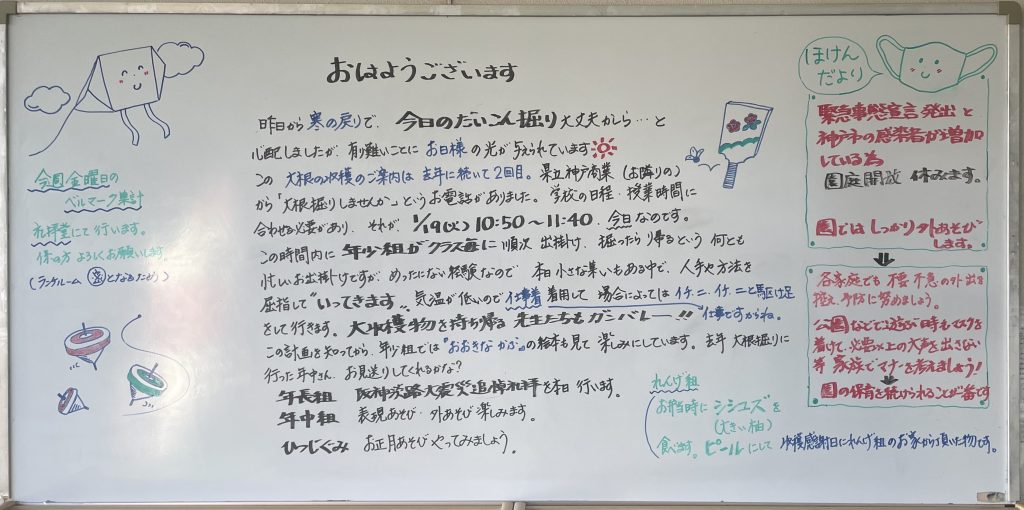 おはようございます
昨日から寒の戻りで、今日のだいこん掘り大丈夫かしら…と
心配しましたが、有難いことにお日様の光が与えられています
この大根の収穫のご案内は去年に続いて2回目。県立神戸商業(お隣りの)
から「大根掘りしませんか」というお電話がありました。学校の日程・授業時間に
合わせる必要があり、それが、1/19(火)10:50〜11:40、今日なのです。
この時間内に年少組がクラス毎に順次出掛け、掘ったら帰るという何とも
忙しいお出掛けですが、めったにない経験なので本日小さな集いもある中で、人手や方法を
屈指して"いってきます"。気温が低いので仕事着着用して場合によってはイチ、ニ、イチ、ニと駆け足
をして行きます。大収穫物を持ち帰る先生たちもガンバレー!!仕事ですからね。
この計画を知ってから、年少組では『おおきなかぶ』の絵本も見て楽しみにしています。去年大根掘りに
行った年中さん、お見送りしてくれるかな?
年長組 阪神淡路大震災追悼礼拝を本日行います。
年中組 表現あそび・外あそび楽しみます。
ひつじぐみ お正月あそびやってみましょう。
今週金曜日の
ベルマーク集計
礼拝堂にて行います。
係の方よろしくお願いします
(ランチルーム 密となるため)
ほけん
だより
緊急事態宣言発出と
神戸市の感染者が増加
している為
園庭開放 休みます。
園ではしっかり外あそび
します。
各家庭でも不要不急の外出を
控え、予防に努めましょう。
公園などで遊ぶ時もマスクを
着けて、必要以上の大声を出さない
等家族でマナーを考えましょう!
園の保育を続けられることが一番です
れんげ組
お弁当時にシシユズを
(大きい柚)
食べます。ピールにして 収穫感謝日にれんげ組のお家から頂いた物です。